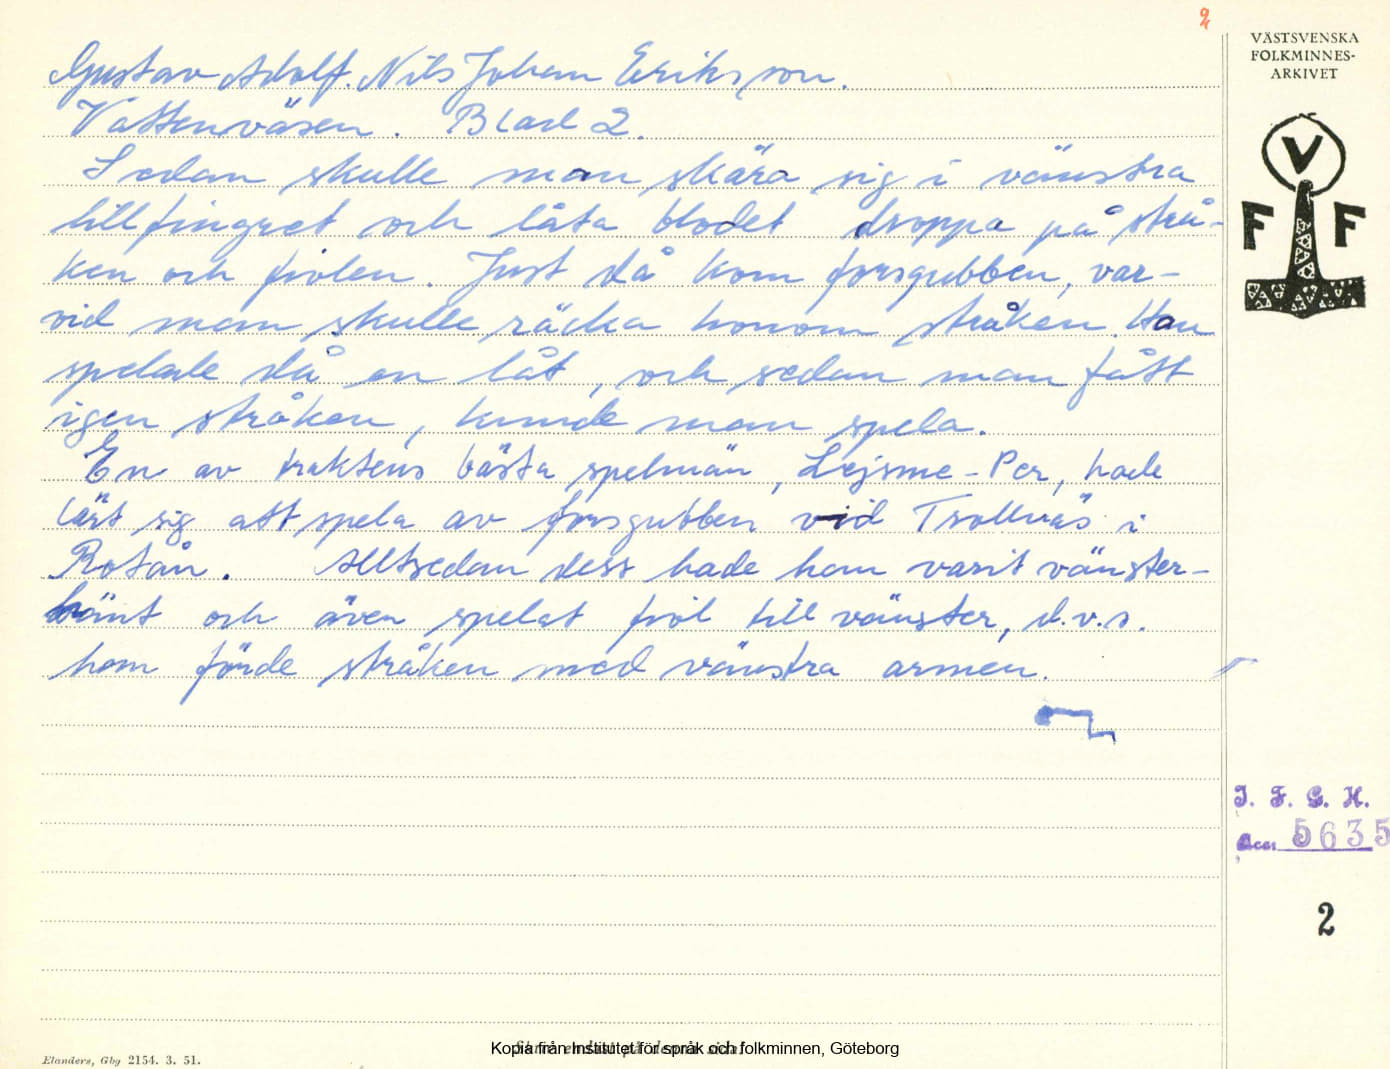 2
VÄSTSVENSKA
FOLKMINNES-
ARKIVET
V
F F
Gustav Adolf. Nils Johan Eriksson.
Vattenväsen. Blad 2.
Sedan skulle man skära sig i vänstra
lillfingret och låta blodet droppa på strå-
ken och fiolen. Just då kom forsgubben, var-
vid man skulle räcka honom stråken. Han
spelade då en låt, och sedan man fått
igen stråken, kunde man spela.
En av traktens bästa spelmän, Lejsme-Per, hade
lärt sig att spela av forsgubben vid Trollnäs i
Rotån. Alltsedan dess hade han varit vänster-
hänt och även spelat fiol till vänster, d.v.s.
han förde stråken med vänstra armen.
I. F. G. H.
Acc. 5635
2
Elanders, Gbg 2154. 3. 51.
Kopia från Institutet för språk och folkminnen, Göteborg